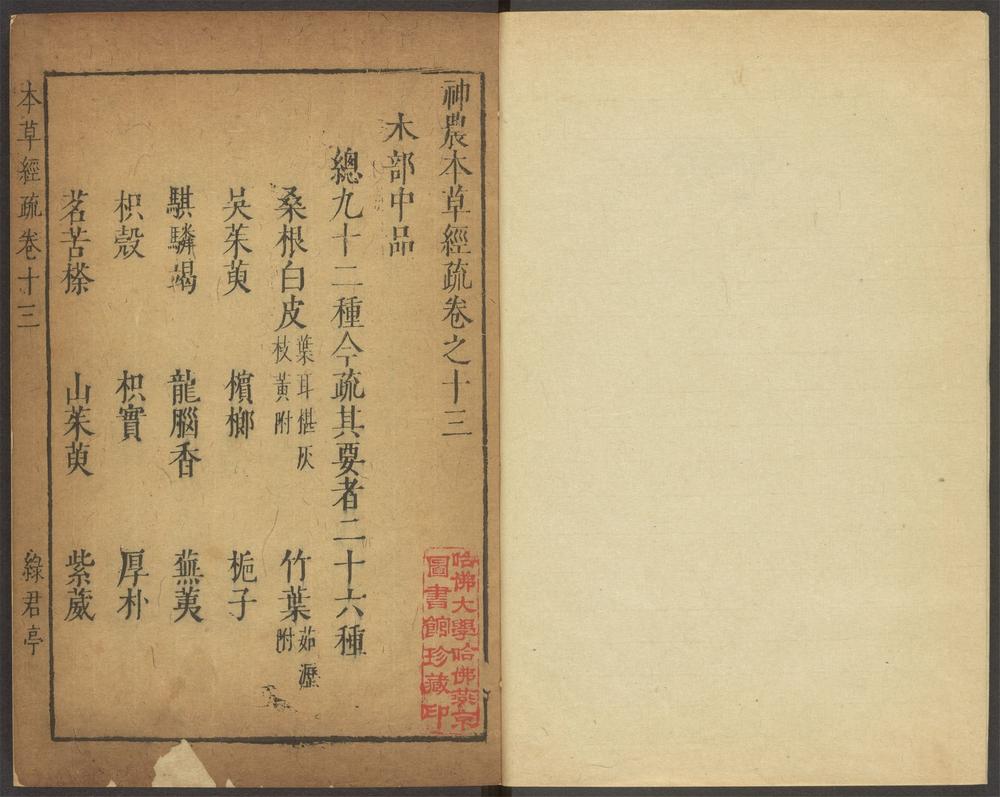 神農本草經疏卷之十三
木部中品
總九十二種今疏其要者二十六種
桑根白皮 葉耳椹灰枝黃附 竹葉 茹瀝附
吳茱萸 檳榔 梔子
騏驎竭 龍腦香 蕪荑
枳殼 枳實 厚朴
茗苦𣗪 山茱萸 紫葳
本草經疏卷十三 綠君亭
哈佛大學哈佛燕京
圖書館珍藏印